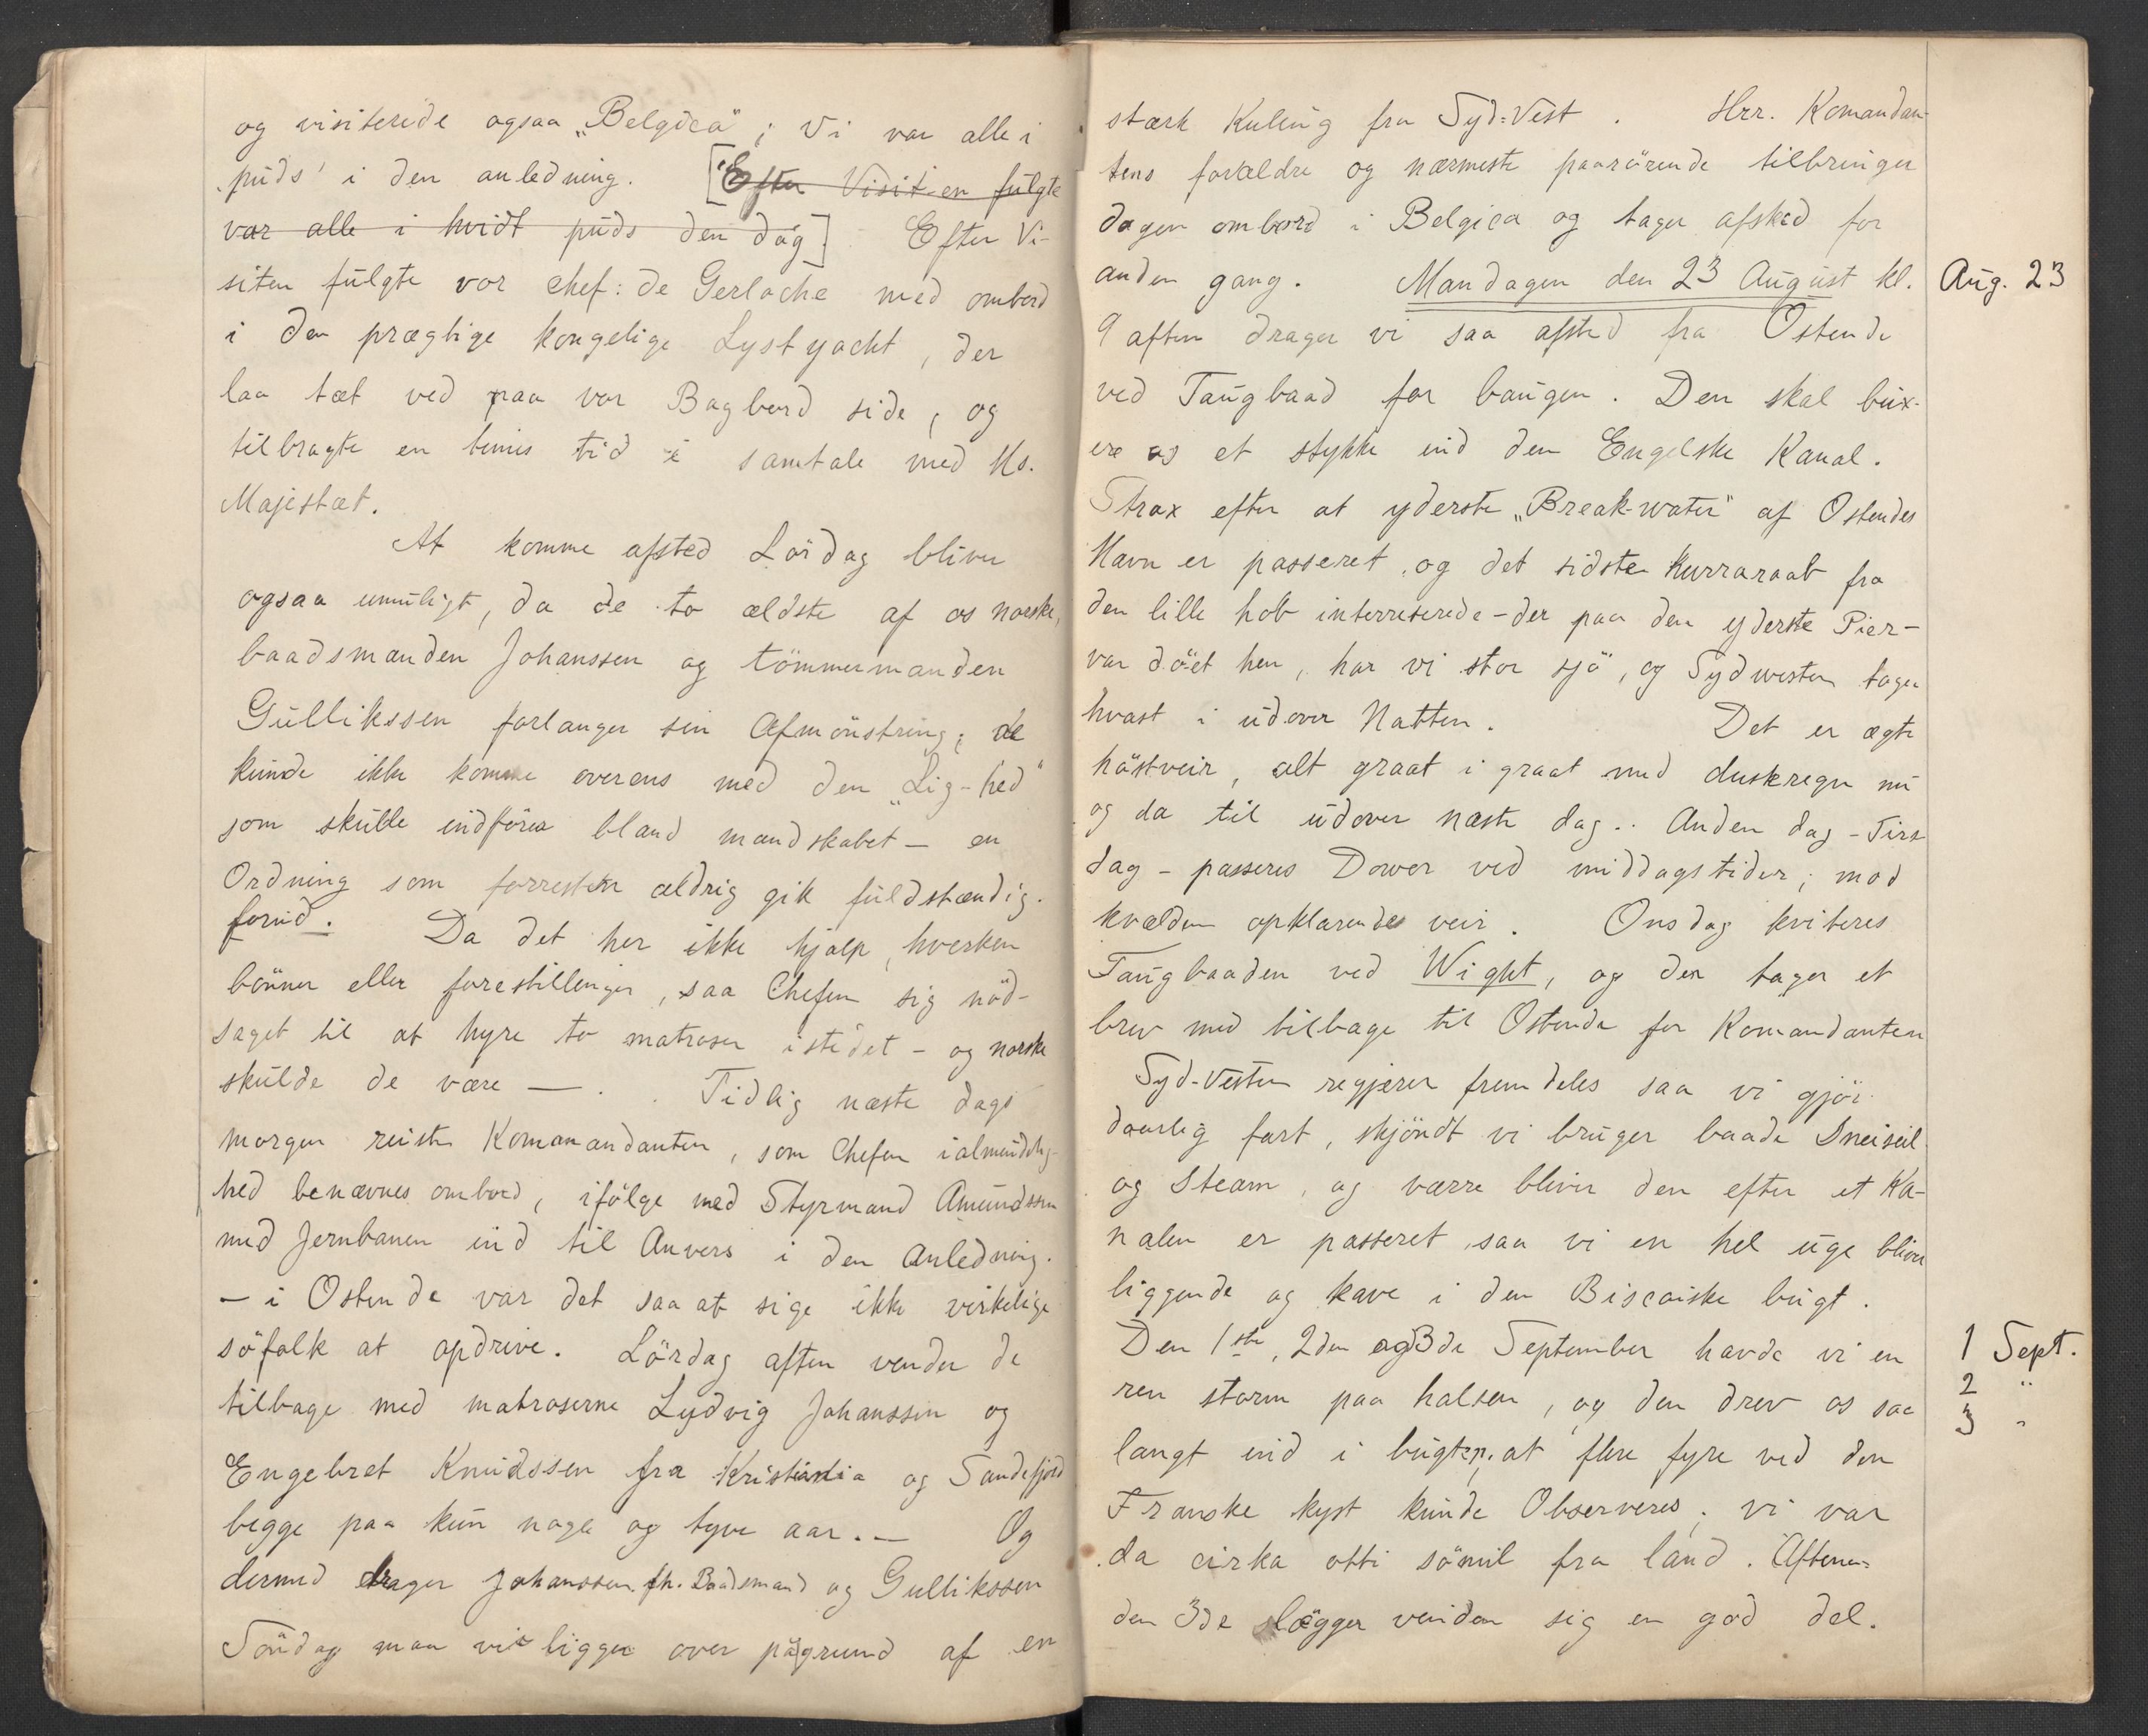 og visiterede ogsaa „Belgica"; Vi var alle i
puds' i den anledning. [Efter Visiten fulgte
var alle i hvidt puds den dag] Efter Vi-
siten fulgte vor chef: de Gerlache med ombord
i den prægtige kongelige Lystyacht, der
laa tæt ved paa vor Bagbord side, og
tilbragte en times tid i samtale med Hs.
Majestæt.
At komme afsted Lördag bliver
ogsaa umuligt, da de to ældste af os norske,
baadsmanden Johanssen og tömmermanden
Gullikssen forlanger sin Afmönstring; de
kunde ikke komme overens med den „Lig-hed"
som skulle indföres bland mandskabet — en
Ordning som forresten aldrig gik fuldstændig.
forud. Da det her ikke hjalp, hverken
bönner eller forestillinger, saa Chefen sig nöd-
saget til at hyre to matroser istedet – og norske
skulde de være —. Tidlig næste dags
morgen reiste Komanandanten, som Chefen ialmindelig-
hed benævnes ombord, ifölge med Styrmand Amundssen
med Jernbanen ind til Anvers i den Anledning.
– i Ostende var det saa at sige ikke virkelige
söfolk at opdrive. Lördag aften vender de
tilbage med matroserne Ludvig Johanssen og
Engebret Knudssen fra Kristiania og Sandefjord
begge paa kun nogle og tyve aar. — Og
dermed drager Johanssen fh. Baadsmand og Gullikssen
Söndag maa vi ligge over pågrund af en
stærk Kuling fra Syd=Vest. Hrr. Komandan-
tens forældre og nærmeste paarörende tilbringer
dagen ombord i Belgica og tager afsked for
anden gang. Mandagen den 23 August kl.
Aug. 23
9 aften drager vi saa afsted fra Ostende
ved Taugbaad for baugen. Den skal bux-
ere os et stykke ind den Engelske Kanal.
Strax efter at yderste „Break-water" af Ostendes
Havn er passeret, og det sidste Hurraraab fra
den lille hob interreserede – der paa den yderste Pier –
var döet hen, har vi stor sjö, og Sydvesten tager
hvast i udover Natten. Det er ægte
höstveir, alt graat i graat med duskregn nu
og da til udover næste dag.. Anden dag – Tirs
dag – passeres Dower ved middagstider; mod
kvælden opklarendes veir. Onsdag kviteres
Taugbaaden ved Wight, og den tager et
brev med tilbage til Ostende for Komandanten
Syd-Vesten regjerer fremdeles saa vi gjör
daarlig fart, skjöndt vi bruger baade Sneiseil
og Steam, og værre bliver den efter at Ka-
nalen er passeret, saa vi en hel uge bliver
liggende og kave i den Biscaiske bugt.
Den 1ste, 2den og 3de September havde vi en
1 Sept.
ren storm paa halsen, og den drev os saa
2 "
langt ind i bugten, at flere fyre ved den
3 "
Franske kyst kunde Observeres; vi var
da cirka otti sömil fra land. Aftenen=
den 3de lægger vinden sig en god del.